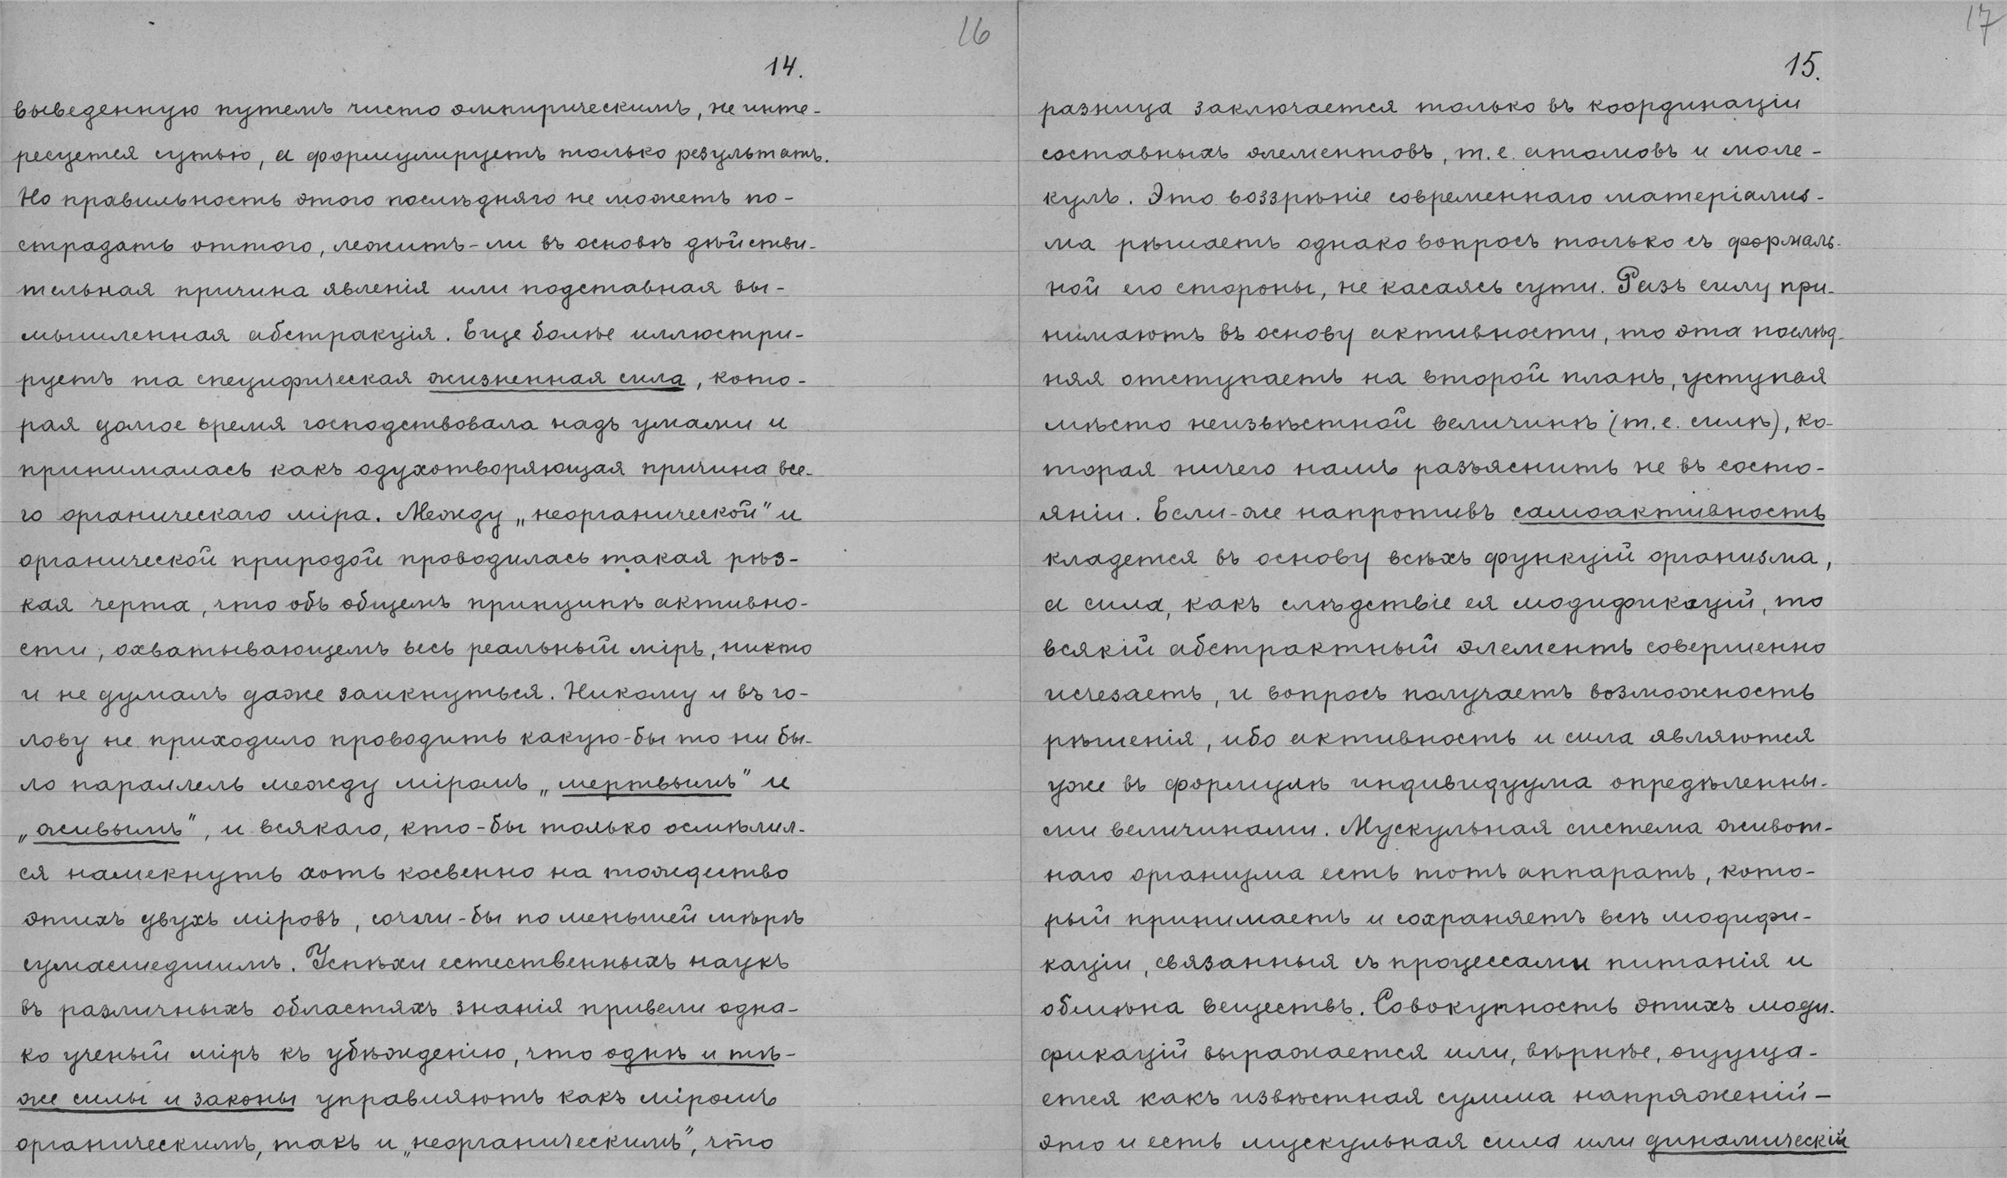 16
14.
выведенную путемъ чисто эмпирическимъ, не инте-
ресуется сутью, а формулируетъ только результатъ.
Но правильность этого послѣдняго не можетъ по-
страдать оттого, лежитъ-ли въ основѣ дѣйстви-
тельная причина явленія или подставная вы-
мышленная абстракція. Еще болѣе иллюстри-
руетъ та специфическая жизненная сила, кото-
рая долгое время господствовала надъ умами и
принималась какъ одухотворяющая причина все-
го органическаго міра. Между „неорганической" и
органической природой проводилась такая рѣз-
кая черта, что объ общемъ принципѣ активно-
сти, охватывающемъ весь реальный міръ, никто
и не думалъ даже заикнуться. Никому и въ го-
лову не приходило проводить какую-бы то ни бы-
ло параллель между міромъ „мертвымъ" и
„живымъ", и всякаго, кто-бы только осмѣлил-
ся намекнуть хоть косвенно на тождество
этихъ двухъ міровъ, сочли-бы по меньшей мѣрѣ
сумасшедшимъ. Успѣхи естественныхъ наукъ
въ различныхъ областяхъ знанія привели одна-
ко ученый міръ къ убѣжденію, что однѣ и тѣ-
же силы и законы управляютъ какъ міромъ
органическимъ, такъ и „неорганическимъ", что
17
15.
разница заключается только въ координаціи
составныхъ элементовъ, т.е. атомовъ и моле-
кулъ. Это воззрѣніе современнаго матеріализ-
ма рѣшаетъ однако вопросъ только съ формаль-
ной его стороны, не касаясь сути. Разъ силу при-
нимаютъ въ основу активности, то эта послѣд-
няя отступаетъ на второй планъ, уступая
мѣсто неизвѣстной величинѣ (т.е. силѣ), ко-
торая ничего намъ разъяснить не въ состо-
яніи. Если-же напротивъ самоактивность
кладется въ основу всѣхъ функцій организма,
а сила, какъ слѣдствіе ея модификацій, то
всякій абстрактный элементъ совершенно
исчезаетъ, и вопросъ получаетъ возможность
рѣшенія, ибо активность и сила являются
уже въ формулѣ индивидуума опредѣленны-
ми величинами. Мускульная система живот-
наго организма есть тотъ аппаратъ, кото-
рый принимаетъ и сохраняетъ всѣ модифи-
каціи, связанныя съ процессами питанія и
обмѣна веществъ. Совокупность этихъ моди-
фикацій выражается или, вѣрнѣе, ощуща-
ется какъ извѣстная сумма напряженій —
это и есть мускульная сила или динамическій